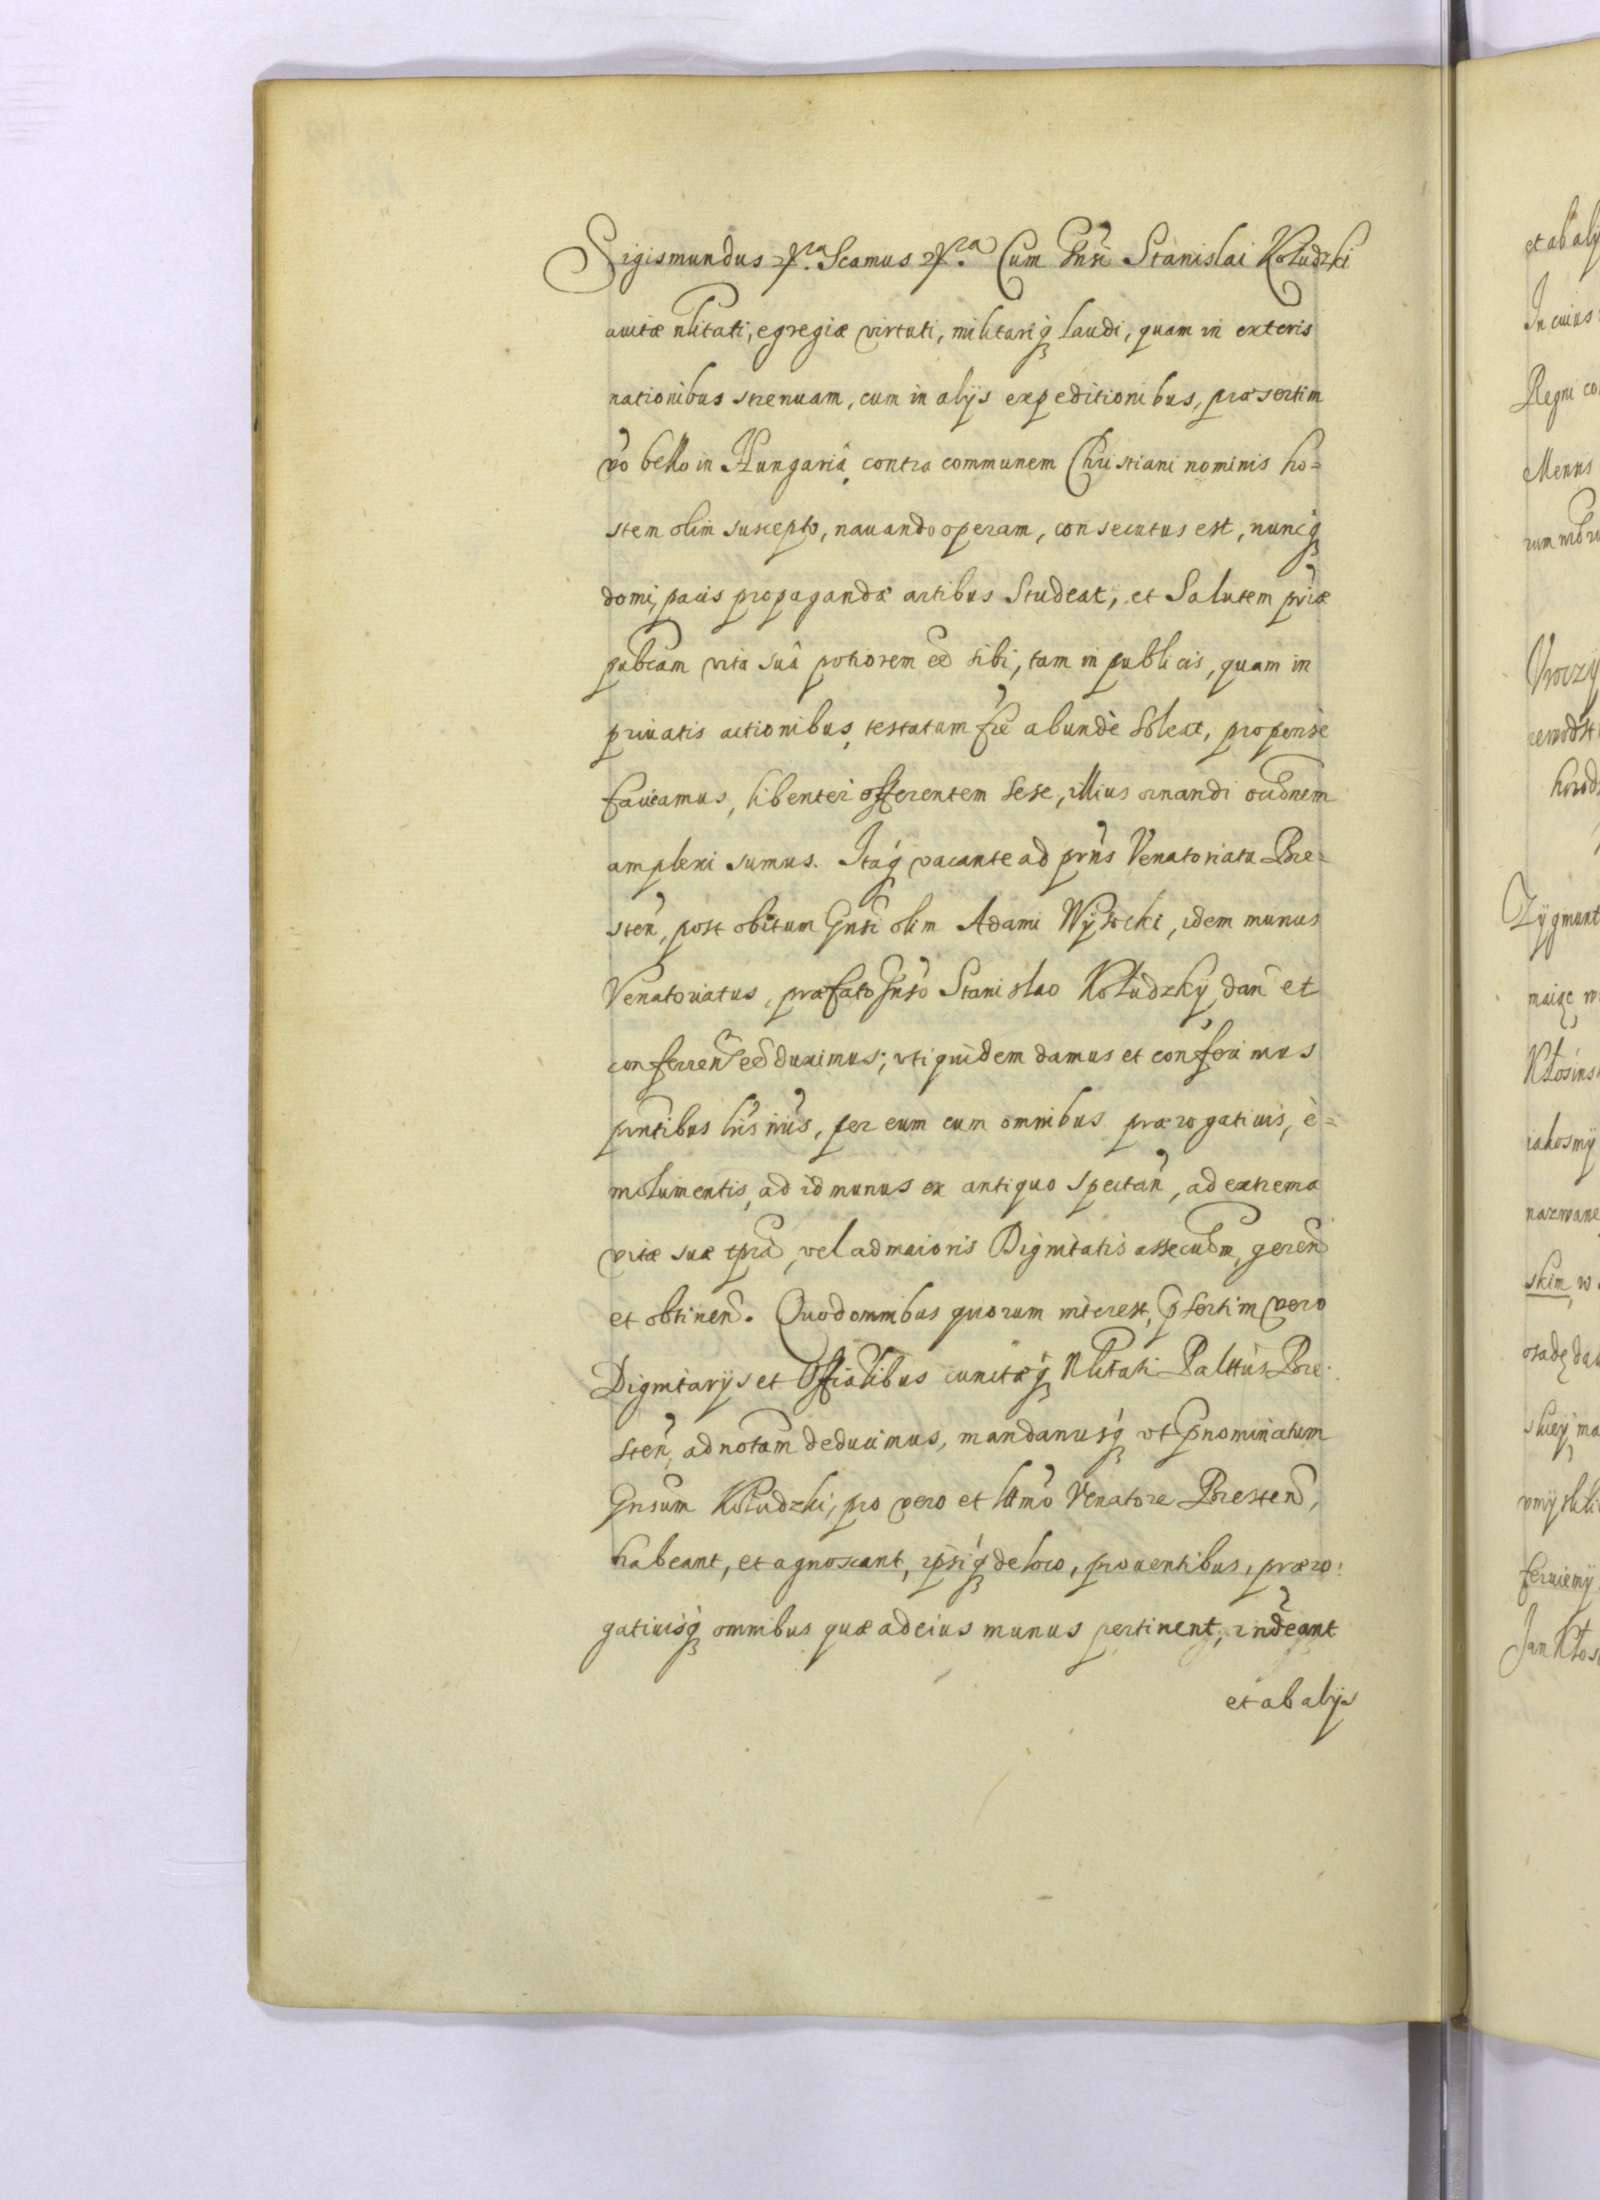 Sigismundus &ra. Scamus &ra. Cum Gnsi Stanislai Kołudzki
auitæ nlitati, egregiæ virtuti, militariq; laudi, quam in exteris
nationibus strenuam, cum in alijs expeditionibus, præsertim
vo bello in Hungariâ, contra communem Christiani nominis ho=
stem olim suscepto, nauando operam, consecutus est, nuncq;
domi, pacis propagandæ artibus studeat, et Salutem priæ
pubcam vita suâ potiorem eē sibi, tam in publicis, quam in
priuatis actionibus, testatum fře abundè soleat, propensè
faueamus, libenter offerentem sese, illius ornandi occõnem
amplexi sumus. Itaq; vacante ad prñs Venatoriatu Bre=
steñ, post obitum Gnsi olim Adami Wÿsocki, idem munus
Venatoriatus, præfato Gnso Stanislao Kołudzkÿ dañ et
conferreñ eē duximus; vti quidem damus et conferimus
pñtibus lřis ñris, per eum cum omnibus prærogatiuis, è=
molumentis, ad id munus ex antiquo spectañ, ad extrema
vitæ suæ tpra, vel ad maioris Dignitatis assecuõm, gereñ
et obtineñ. Quod omnibus quorum interest, p̃sertim vero
Dignitarijs et Offialibus cunctæq; Nlitati Palttus Bre:
steñ, ad notam deducimus, mandamusq; vt p̃nominatum
Gnsum Kołudzki, pro vero et lttmo Venatore Bresteñ,
habeant, et agnoscant, ipsiq; de loco, prouentibus, præro:
gatiuisq; omnibus quæ ad eius munus pertinent, rñdeant
et ab alijs
et ab alij
In cuius
Regni co
Mensis
rum nrõru
horod
Zÿgmunt
maiąc
iakosmÿ
nazwane
skim, w
osadę da
skieÿ ma
vmÿsli
feruiemÿ
Jan Kłos